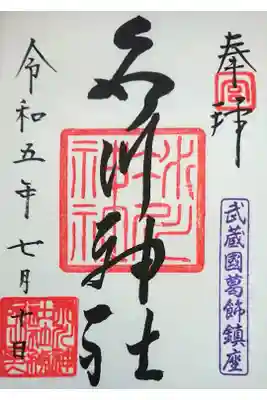 奉拝
武蔵國葛飾鎮座
氷川神社
氷川神社
令和五年七月十日